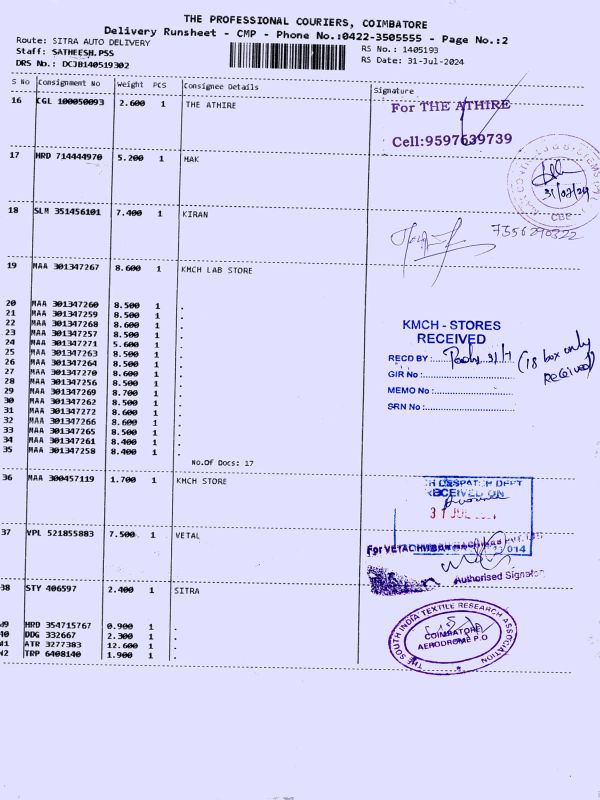 THE PROFESSIONAL COURIERS, COIMBATORE
Delivery Runsheet - CMP - Phone No.:0422-3505555 - Page No.:2
Route: SITRA AUTO DELIVERY
RS No.: 1405193
Staff: SATHEESH.PSS
RS Date: 31-Jul-2024
DRS No.: DCJB140519302
S No Consignment No Weight PCS Consignee Details Signature
16 CGL 100050093 2.600 1 THE ATHIRE
For THE ATHIRE
Cell:9597639739
17 HRD 714444970 5.200 1 MAK
31/07/24
CBE
18 SLM 351456101 7.400 1 KIRAN
7356290322
19 MAA 301347267 8.600 1 KMCH LAB STORE
20 MAA 301347260 8.500 1 .
21 MAA 301347259 8.500 1 .
22 MAA 301347268 8.600 1 .
23 MAA 301347257 8.500 1 .
24 MAA 301347271 5.600 1 .
25 MAA 301347263 8.500 1 .
26 MAA 301347264 8.500 1 .
27 MAA 301347270 8.600 1 .
28 MAA 301347256 8.500 1 .
29 MAA 301347269 8.700 1 .
30 MAA 301347262 8.500 1 .
31 MAA 301347272 8.600 1 .
32 MAA 301347266 8.600 1 .
33 MAA 301347265 8.500 1 .
34 MAA 301347261 8.400 1 .
35 MAA 301347258 8.400 1 .
No.Of Docs: 17
KMCH - STORES
RECEIVED
RECD BY: 31/7 (18 box only
received)
GIR No :
MEMO No :
SRN No :
36 MAA 300457119 1.700 1 KMCH STORE
DESPATCH DEPT
RECEIVED ON
31 JUL
641 014
37 VPL 521855883 7.500 1 VETAL
For VETAL
Authorised Signatory
38 STY 406597 2.400 1 SITRA
39 HRD 354715767 0.900 1 .
40 DDG 332667 2.300 1 .
41 ATR 3277383 12.600 1 .
42 TRP 6408140 1.900 1 .
THE SOUTH INDIA TEXTILE RESEARCH ASSOCIATION
COIMBATORE
AERODROME P.O